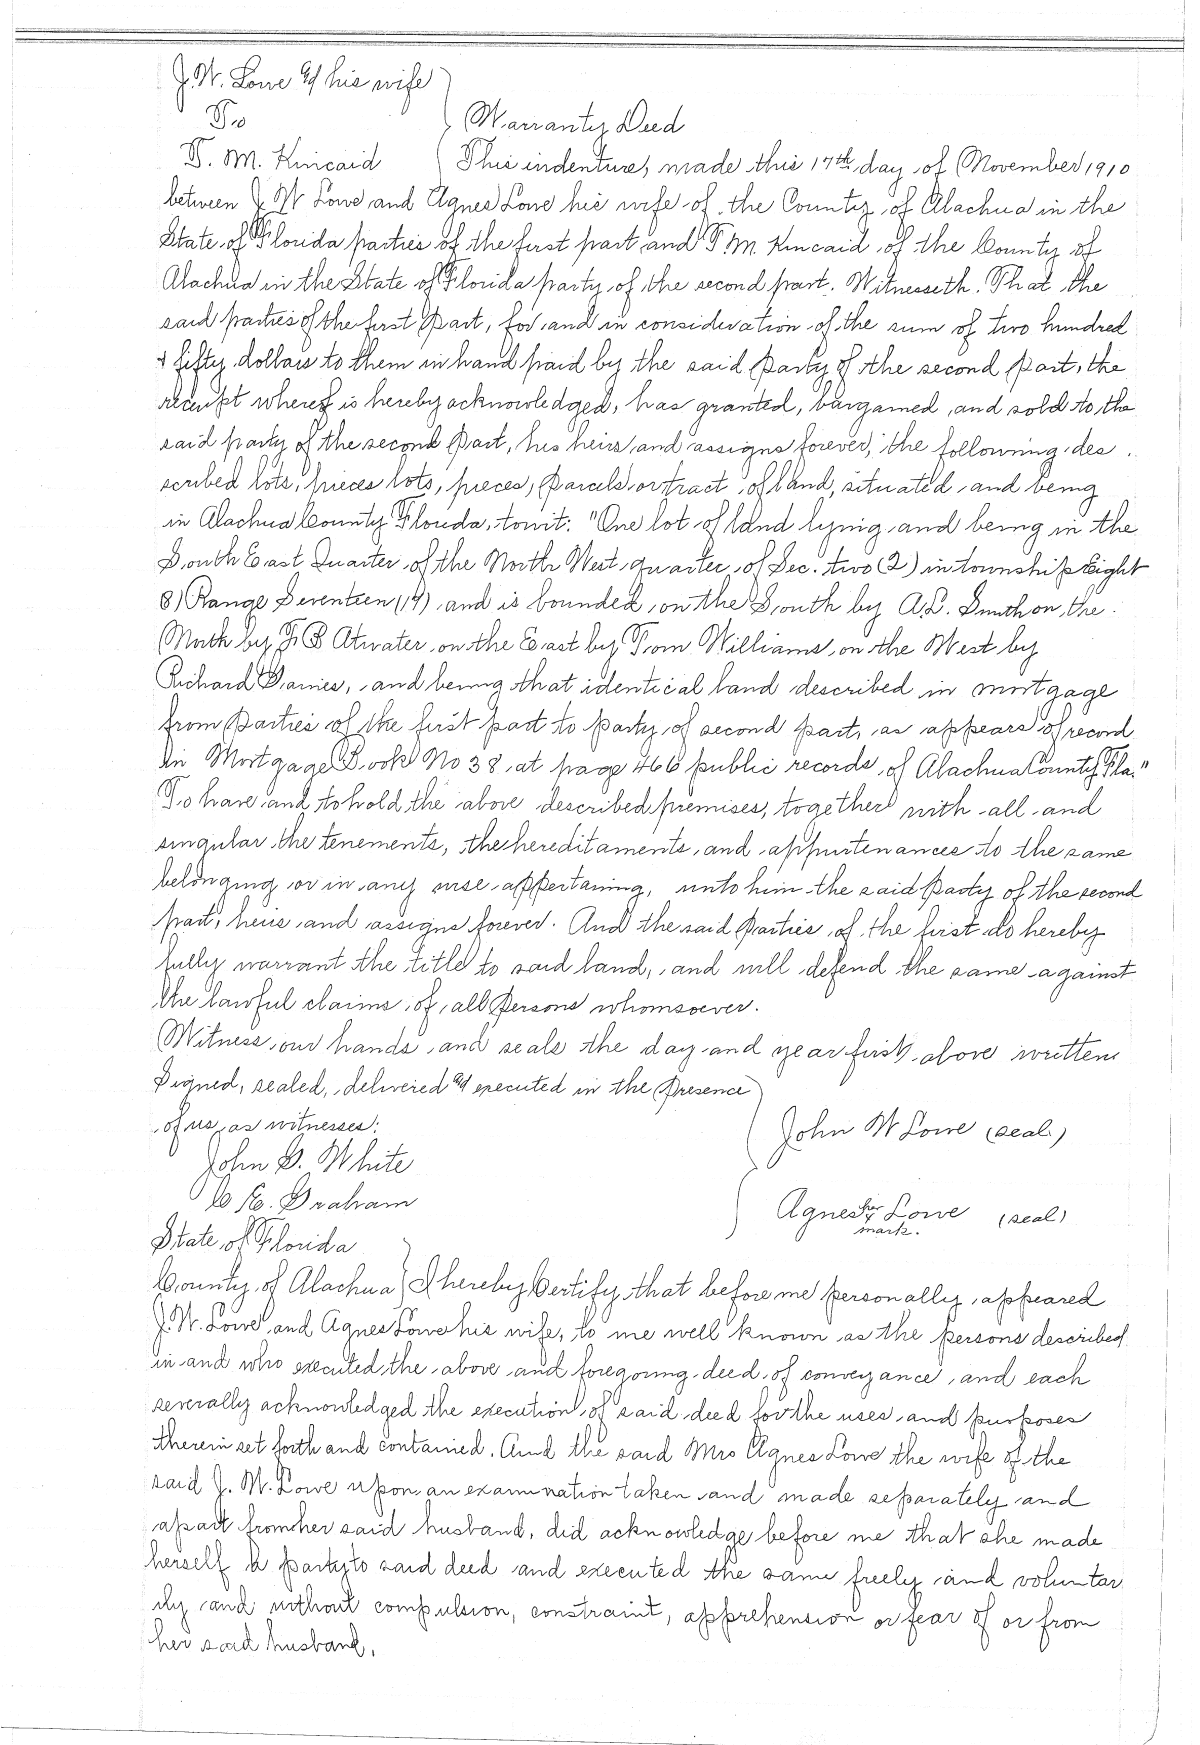 J. W. Lowe & his wife
To
Warranty Deed
T. M. Kincaid This indenture, made this 17th day of November 1910
between J W Lowe and Agnes Lowe his wife of the County of Alachua in the
State of Florida parties of the first part and T. M. Kincaid of the County of
Alachua in the State of Florida party of the second part. Witnesseth. That the
said parties of the first Part, for and in consideration of the sum of two hundred
& fifty dollars to them in hand paid by the said Party of the second Part, the
receipt whereof is hereby acknowledged, has granted, bargained, and sold to the
said party of the second Part, his heirs and assigns forever, the following des
scribed lots, pieces lots, pieces, Parcels or tract of land, situated and being
in Alachua County Florida, towit: "One lot of land lying and being in the
South East Quarter of the North West quarter of Sec. two (2) in township Eight
8) Range Seventeen (17) and is bounded on the South by A. L. Smith on the
North by F B Atwater on the East by Tom Williams on the West by
Richard, and being that identical land described in mortgage
from Parties of the first part to party of second part, as appears of record
in Mortgage Book No 38 at page 466 public records of Alachua County Fla."
To have and to hold the above described premises, together with all and
singular the tenements, the hereditaments and appurtenances to the same
belonging or in any wise appertaining, unto him the said Party of the second
part, heirs and assigns forever. And the said Parties of the first do hereby
fully warrant the title to said land, and will defend the same against
the lawful claims of all Persons whomsoever.
Witness our hands and seals the day and year first above written
Signed, sealed, delivered & executed in the Presence
of us as witnesses:
John W Lowe (seal)
John G. White
C E. Graham
Agnes her x mark. Lowe (seal)
State of Florida
County of Alachua I hereby Certify that before me personally appeared
J. W. Lowe and Agnes Lowe his wife, to me well known as the persons described
in and who executed the above and foregoing deed of conveyance, and each
severally acknowledged the execution of said deed for the uses and purposes
therein set forth and contained. And the said Mrs Agnes Lowe the wife of the
said J. W. Lowe upon an examination taken and made separately and
apart from her said husband, did acknowledge before me that she made
herself a party to said deed and executed the same freely and voluntar
ily and without compulsion, constraint, apprehension or fear of or from
her said husband.